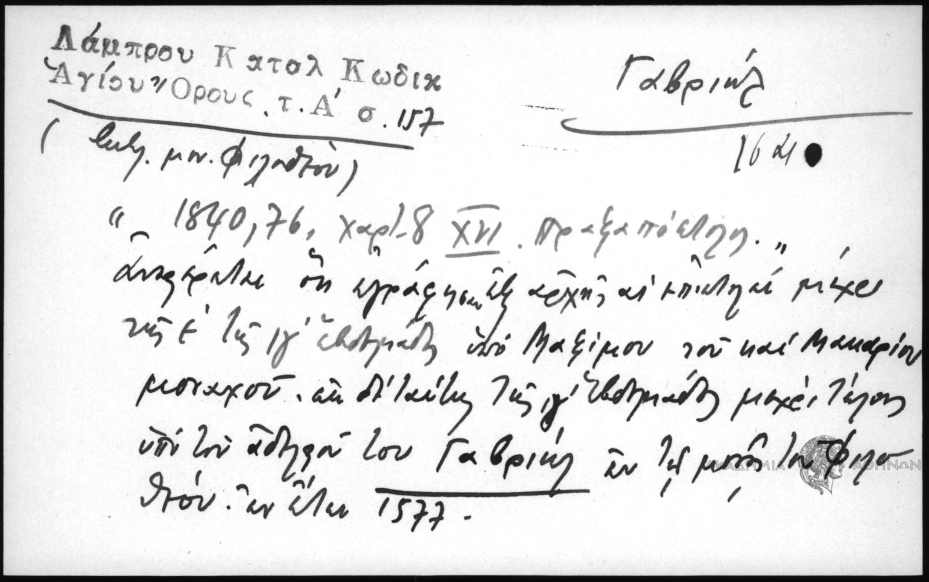 Λάμπρου Καταλ Κωδικ
Ἁγίου Ὄρους, τ. Α' σ. 157
Γαβριήλ
16 αι
(βιβλ. μον. Φιλοθέου)
" 1840, 76, χαρτ. 8 XVI. Πραξαπόστολος. "
ἀναφέρεται ὅτι ἐγράφησαν ἐξ ἀρχῆς αἱ ἐπιστολαί μέχρι
τῆς ε' τῆς ιγ' ἑβδομάδος ὑπό Μαξίμου τοῦ καί Μακαρίου
μοναχοῦ. ἐκ δέ ταύτης τῆς ιγ' ἑβδομάδος μέχρι τέλους
ὑπό τοῦ ἀδελφοῦ του Γαβριήλ ἐν τῇ μονῇ του Φιλο
θέου. ἐν ἔτει 1577.
ΑΚΑΔΗΜΙΑ ΑΘΗΝΩΝ